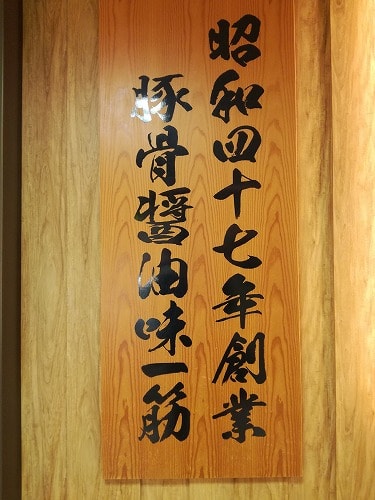 昭和四十七年創業
豚骨醤油味一筋